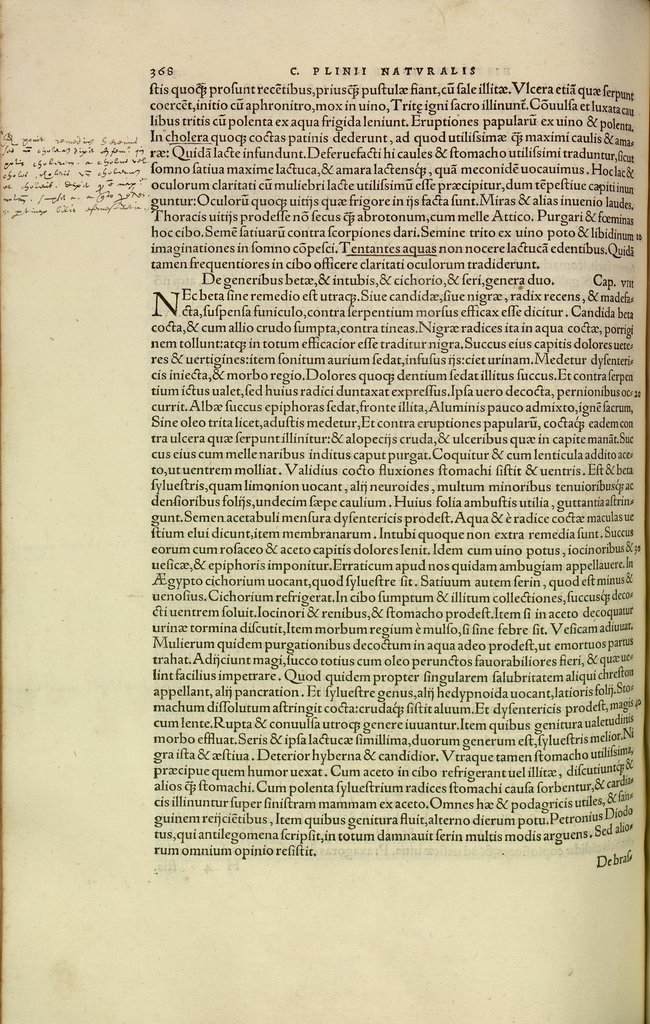 368 C. PLINII NATVRALIS
ſtis quoq́ꝫ proſunt recētibus,priusq́ꝫ puſtulæ fiant,cū ſale illitæ. Vlcera etiā quæ ſerpunt
coercēt,initio cū aphronitro,mox in uino,Tritę igni ſacro illinunt. Cōuulſa et luxata cau
libus tritis cū polenta ex aqua frigida leniunt. Eruptiones papularū ex uino & polenta.
In cholera quoqꝫ coctas patinis dederunt, ad quod utiliſsimæ q̄ꝫ maximi caulis & ama⸗
ræ: Quidā lacte infundunt. Deferuefacti hi caules & ſtomacho utiliſsimi traduntur,ſicut
ſomno ſatiua maxime lactuca,& amara lactensq́ꝫ, quā meconidē uocauimus. Hoc lac &
oculorum claritati cū muliebri lacte utiliſsimū eſſe præcipitur,dum tēpeſtiue capiti inun
guntur: Oculorū quoqꝫ uitijs quæ frigore in ijs facta ſunt. Miras & alias inuenio laudes,
Thoracis uitijs prodeſſe nō ſecus q̄ꝫ abrotonum,cum melle Attico. Purgari & fœminas
hoc cibo. Semē ſatiuarū contra ſcorpiones dari. Semine trito ex uino poto & libidinum 10
imaginationes in ſomno cōpeſci. Tentantes aquas non nocere lactucā edentibus. Quidā
tamen frequentiores in cibo officere claritati oculorum tradiderunt.
De generibus betæ,& intubis,& cichorio,& ſeri,genera duo. Cap. VIII
NEc beta ſine remedio eſt utraqꝫ. Siue candidæ,ſiue nigræ, radix recens, & madefa⸗
cta,ſuſpenſa funiculo,contra ſerpentium morſus efficax eſſe dicitur. Candida beta
cocta,& cum allio crudo ſumpta,contra tineas. Nigræ radices ita in aqua coctæ, porrigi
nem tollunt:atqꝫ in totum efficacior eſſe traditur nigra. Succus eius capitis dolores uete⸗
res & uertigines:item ſonitum aurium ſedat,infuſus ijs:ciet urinam. Medetur dyſenteri⸗
cis iniecta,& morbo regio. Dolores quoqꝫ dentium ſedat illitus ſuccus. Et contra ſerpen
tium ictus ualet,ſed huius radici duntaxat expreſſus. Ipſa uero decocta, pernionibus oc⸗20
currit. Albæ ſuccus epiphoras ſedat,fronte illita,Aluminis pauco admixto,ignē ſacrum,
Sine oleo trita licet,aduſtis medetur,Et contra eruptiones papularū, coctaq́ꝫ eadem con
tra ulcera quæ ſerpunt illinitur:& alopecijs cruda,& ulceribus quæ in capite manāt. Suc
cus eius cum melle naribus inditus caput purgat. Coquitur & cum lenticula addito ace⸗
to,ut uentrem molliat. Validius cocto fluxiones ſtomachi ſiſtit & uentris. Eſt & beta
ſylueſtris,quam limonion uocant, alij neuroides, multum minoribus tenuioribusq́ꝫ ac
denſioribus folijs,undecim ſæpe caulium. Huius folia ambuſtis utilia, guttantia aſtrin⸗
gunt. Semen acetabuli menſura dyſentericis prodeſt. Aqua & è radice coctæ maculas ue
ſtium elui dicunt,item membranarum. Intubi quoque non extra remedia ſunt. Succus
eorum cum roſaceo & aceto capitis dolores lenit. Idem cum uino potus, iocinoribus & 30
ueſicæ,& epiphoris imponitur. Erraticum apud nos quidam ambugiam appellauere. In
Ægypto cichorium uocant,quod ſylueſtre ſit. Satiuum autem ſerin, quod eſt minus &
uenoſius. Cichorium refrigerat. In cibo ſumptum & illitum collectiones,ſuccusq́ꝫ deco⸗
cti uentrem ſoluit. Iocinori & renibus,& ſtomacho prodeſt. Item ſi in aceto decoquatur
urinæ tormina diſcutit,Item morbum regium è mulſo,ſi ſine febre ſit. Veſicam adiuuat.
Mulierum quidem purgationibus decoctum in aqua adeo prodeſt,ut emortuos partus
trahat. Adijciunt magi,ſucco totius cum oleo perunctos fauorabiliores fieri, & quæ ue⸗
lint facilius impetrare. Quod quidem propter ſingularem ſalubritatem aliqui chreſton
appellant, alij pancration. Et ſylueſtre genus,alij hedypnoida uocant,latioris folij. Sto⸗
machum diſſolutum aſtringit cocta:crudaq́ꝫ ſiſtit aluum. Et dyſentericis prodeſt, magis 40
cum lente. Rupta & conuulſa utroqꝫ genere iuuantur. Item quibus genitura ualetudinis
morbo effluat. Seris & ipſa lactucæ ſimillima,duorum generum eſt,ſylueſtris melior. Ni
gra iſta & æſtiua. Deterior hyberna & candidior. Vtraque tamen ſtomacho utiliſsima,
præcipue quem humor uexat. Cum aceto in cibo refrigerant uel illitæ, diſcutiuntq́ꝫ &
alios q̄ꝫ ſtomachi. Cum polenta ſylueſtrium radices ſtomachi cauſa ſorbentur,& cardia⸗
cis illinuntur ſuper ſiniſtram mammam ex aceto. Omnes hæ & podagricis utiles, & ſan⸗
guinem reijcientibus, Item quibus genitura fluit,alterno dierum potu. Petronius Diodo
tus,qui antilegomena ſcripſit,in totum damnauit ſerin multis modis arguens. Sed alio⸗
rum omnium opinio reſiſtit.
De braſ⸗